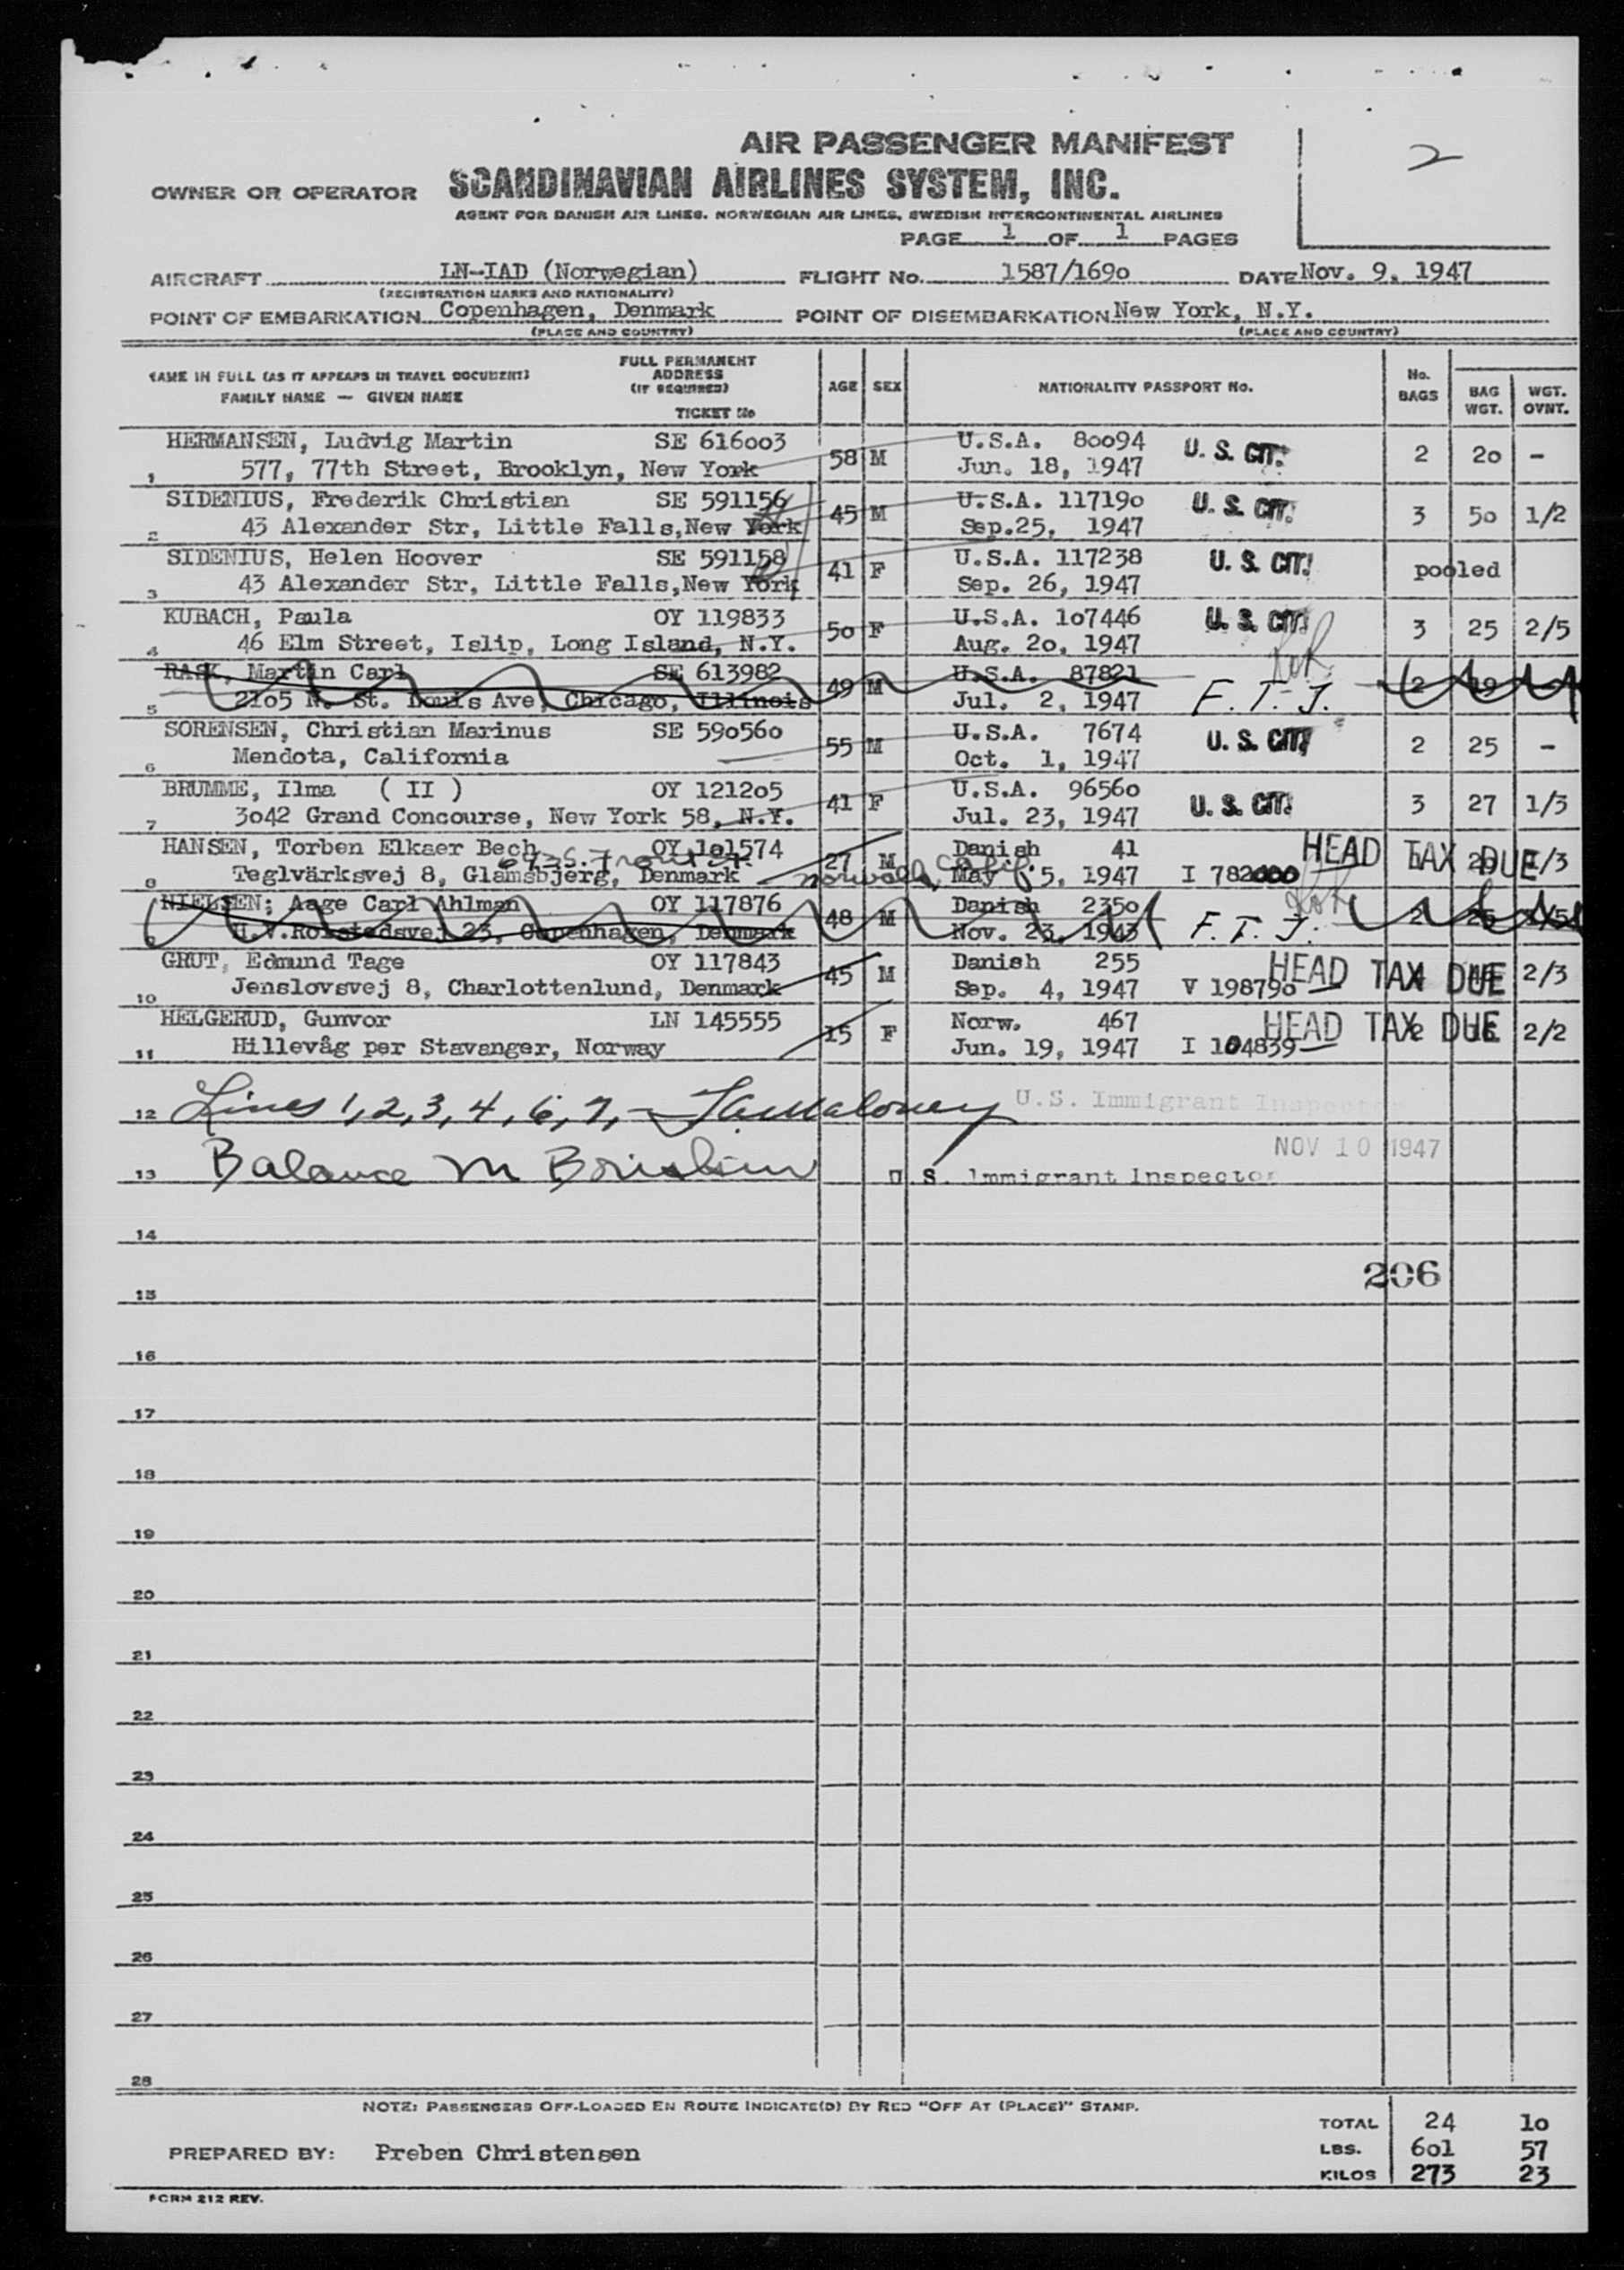 AIR PASSENGER MANIFEST
2
OWNER OR OPERATOR SCANDINAVIAN AIRLINES SYSTEM, INC.
AGENT FOR DANISH AIR LINES. NORWEGIAN AIR LINES, SWEDISH INTERCONTINENTAL AIRLINES
PAGE 1 OF 1 PAGES
AIRCRAFT LN-IAD (Norwegian) FLIGHT No. 1587/1690 DATE Nov. 9, 1947
(REGISTRATION MARKS AND NATIONALITY)
POINT OF EMBARKATION Copenhagen, Denmark POINT OF DISEMBARKATION New York, N.Y.
(PLACE AND COUNTRY) (PLACE AND COUNTRY)
NAME IN FULL (AS IT APPEARS IN TRAVEL DOCUMENT) FAMILY NAME — GIVEN NAME FULL PERMANENT ADDRESS (IF REQUIRED) TICKET No AGE SEX NATIONALITY PASSPORT No. No. BAGS BAG WGT. WGT. OVNT.
HERMANSEN, Ludvig Martin SE 616003 U.S.A. 80094 U. S. CIT.
1 577, 77th Street, Brooklyn, New York 58 M Jun. 18, 1947 2 20 -
SIDENIUS, Frederik Christian SE 591156 U.S.A. 117190 U. S. CIT.
2 43 Alexander Str, Little Falls,New York 45 M Sep.25, 1947 3 50 1/2
SIDENIUS, Helen Hoover SE 591158 U.S.A. 117238 U. S. CIT.
3 43 Alexander Str, Little Falls,New York 41 F Sep. 26, 1947 pooled
KUBACH, Paula OY 119833 U.S.A. 107446 U. S. CIT.
4 46 Elm Street, Islip, Long Island, N.Y. 50 F Aug. 20, 1947 3 25 2/5
RASK, Martin Carl SE 613982 U.S.A. 87821
5 2105 N. St. Louis Ave, Chicago, Illinois 49 M Jul. 2, 1947 F. T. J. 2 19
SORENSEN, Christian Marinus SE 590560 U.S.A. 7674 U. S. CIT.
6 Mendota, California 55 M Oct. 1, 1947 2 25 -
BRUMME, Ilma ( II ) OY 121205 U.S.A. 96560
7 3042 Grand Concourse, New York 58, N.Y. 41 F Jul. 23, 1947 U. S. CIT. 3 27 1/3
HANSEN, Torben Elkaer Bech OY 101574 Danish 41 HEAD TAX DUE
8 Teglvärksvej 8, Glamsbjerg, Denmark 27 M Norwalk, Calif. May 5, 1947 I 782000 1/3
NIELSEN; Aage Carl Ahlman OY 117876 Danish 2350
9 H.V.Rolstedsvej 23, Copenhagen, Denmark 48 M Nov. 23, 1943 F. T. J. 2
GRUT, Edmund Tage OY 117843 Danish 255 HEAD TAX DUE
10 Jenslovsvej 8, Charlottenlund, Denmark 45 M Sep. 4, 1947 V 198790 2/3
HELGERUD, Gunvor LN 145555 Norw. 467 HEAD TAX DUE
11 Hillevåg per Stavanger, Norway 15 F Jun. 19, 1947 I 104839 2 2/2
12 Lines 1, 2, 3, 4, 6, 7, - Maloney U.S. Immigrant Inspector
NOV 10 1947
13 Balance M U.S. Immigrant Inspector
14
206
15
16
17
18
19
20
21
22
23
24
25
26
27
28
NOTE: PASSENGERS OFF-LOADED EN ROUTE INDICATE(D) BY RED "OFF AT (PLACE)" STAMP.
TOTAL 24 10
PREPARED BY: Preben Christensen LBS. 601 57
KILOS 273 23
FORM 212 REV.